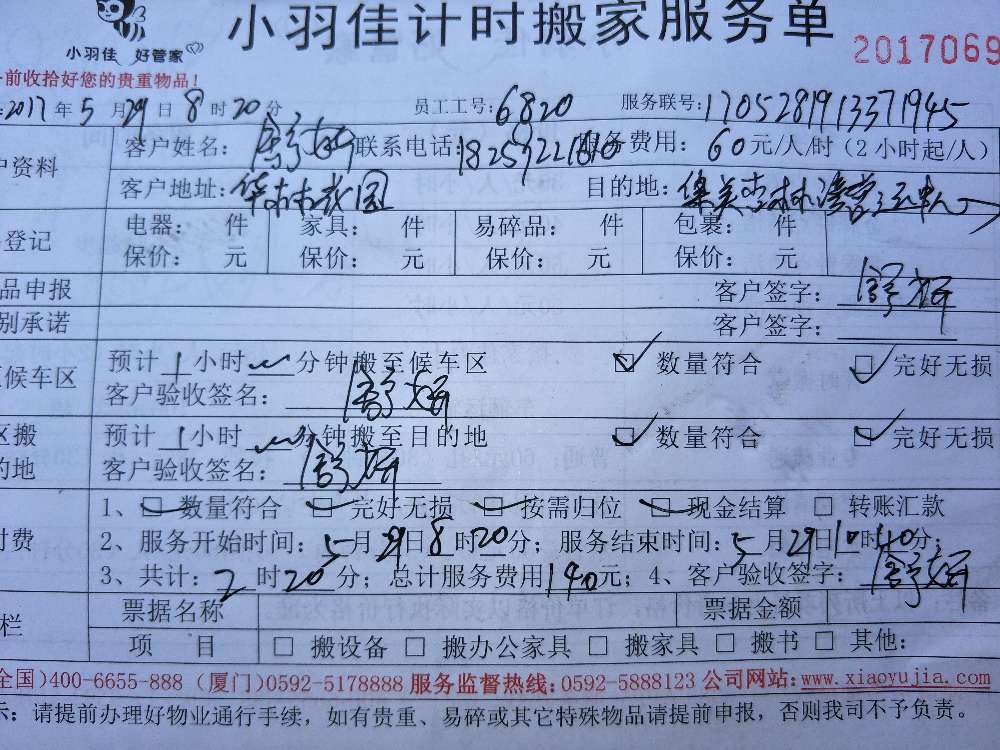 小羽佳计时搬家服务单
小羽佳 好管家
2017069
前收拾好您的贵重物品!
2017年5月29日8时20分 员工工号:6820 服务联号:1705281913371945
户资料 客户姓名: 联系电话: 服务费用: 60元/人/时(2小时起/人)
客户地址: 目的地: 集美杏林
登记 电器: 件 家具: 件 易碎品: 件 包裹: 件
保价: 元 保价: 元 保价: 元 保价: 元
品申报 客户签字:
别承诺 客户签字:
候车区 预计1小时 分钟搬至候车区 ☑ 数量符合 ☑ 完好无损
客户验收签名:
区搬 预计1小时 分钟搬至目的地 ☑ 数量符合 ☑ 完好无损
的地 客户验收签名:
1、☑ 数量符合 ☑ 完好无损 ☑ 按需归位 ☑ 现金结算 □ 转账汇款
付费 2、服务开始时间:5月29日8时20分;服务结束时间:5月29日10时40分;
3、共计:2时20分;总计服务费用140元;4、客户验收签字:
栏 票据名称 票据金额
项 目 □ 搬设备 □ 搬办公家具 □ 搬家具 □ 搬书 □ 其他:
全国)400-6655-888 (厦门)0592-5178888 服务监督热线:0592-5888123 公司网站:www.xiaoyujia.com
示:请提前办理好物业通行手续,如有贵重、易碎或其它特殊物品请提前申报,否则我司不予负责。